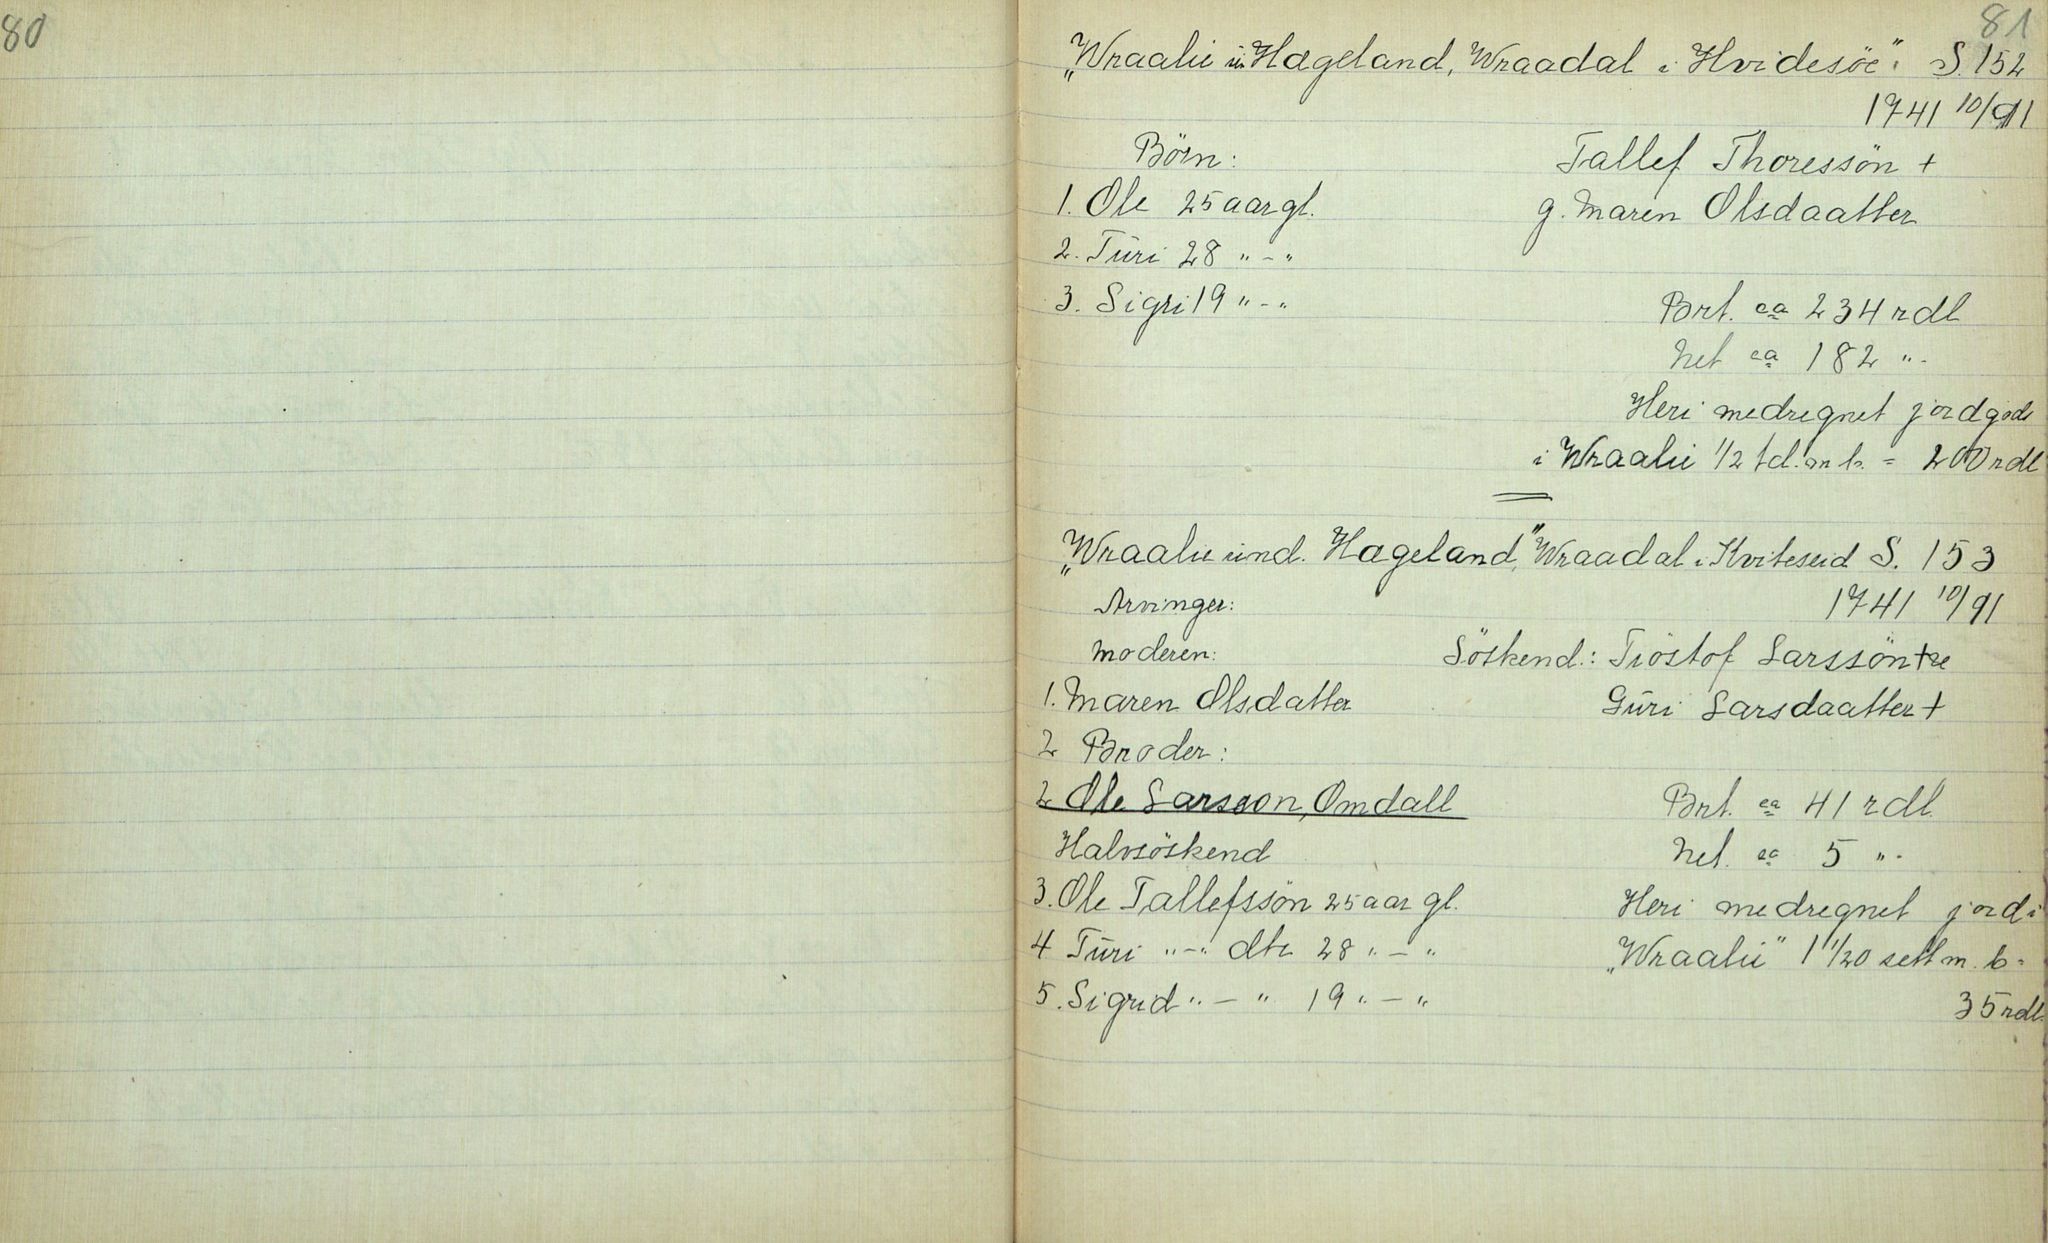 80
81
„Wraalie in Hageland, Wraadal i Hvidesöe". S. 152
1741 10/91
Börn:
Tallef Thoressön +
1. Ole 25 aar gl.
g. Maren Olsdaatter
2. Turi 28 " - "
3. Sigri 19 " - "
Brt. ca 234 rdl
Net ca 182 " -
Heri medregnet jordgods
i Wraalie 1/2 td. m b. = 200 rdl
„Wraalie und. Hageland", Wraadal i Kviteseid S. 153
Arvinger:
1741 10/91
Moderen:
Söskend.: Tiöstof Larssön +
1. Maren Olsdatter
Guri Larsdaatter +
2 Broder:
2 Ole Larsson, Omdall
Brt. ca 41 rdl.
Halvsöskend
Net. ca 5 " -
3. Ole Tallefssön 25 aar gl.
Heri medregnet jord i
4 Turi " - " dtr 28 " - "
„Wraalii" 1 1/20 sett m. b =
5. Sigrid " - " 19 " - "
35 rdl.